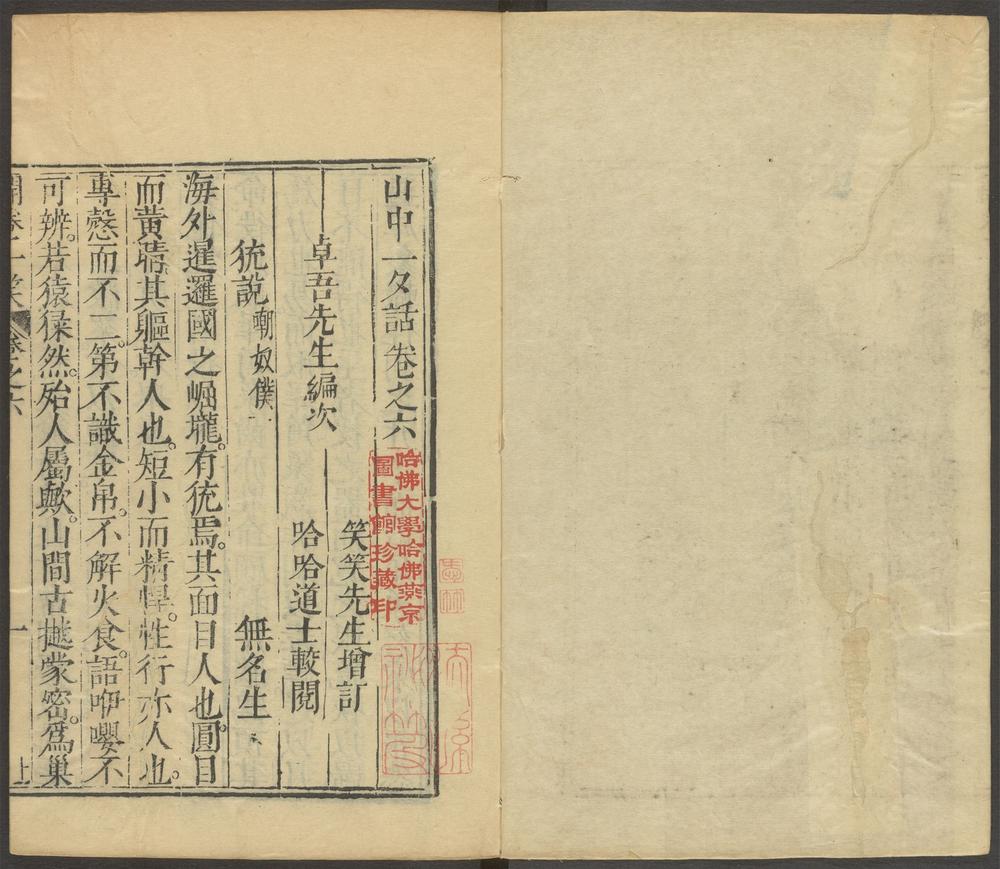 山中一夕話卷之六
哈佛大學哈佛燕京
圖書館珍藏印
笑笑先生增訂
卓吾先生編次
哈哈道士較閱
狁說 嘲奴僕
無名生
海外暹邏國之崛壠。有狁焉。其面目人也。圓目
而黃睛。其軀幹人也。短小而精悍。性行亦人也。
專愨而不二。第不識金帛。不解火食。語咿嚶不
可辨。若猿猱然。殆人屬歟。山間古樾蒙密。爲巢
開卷一笑 卷之六 一 上